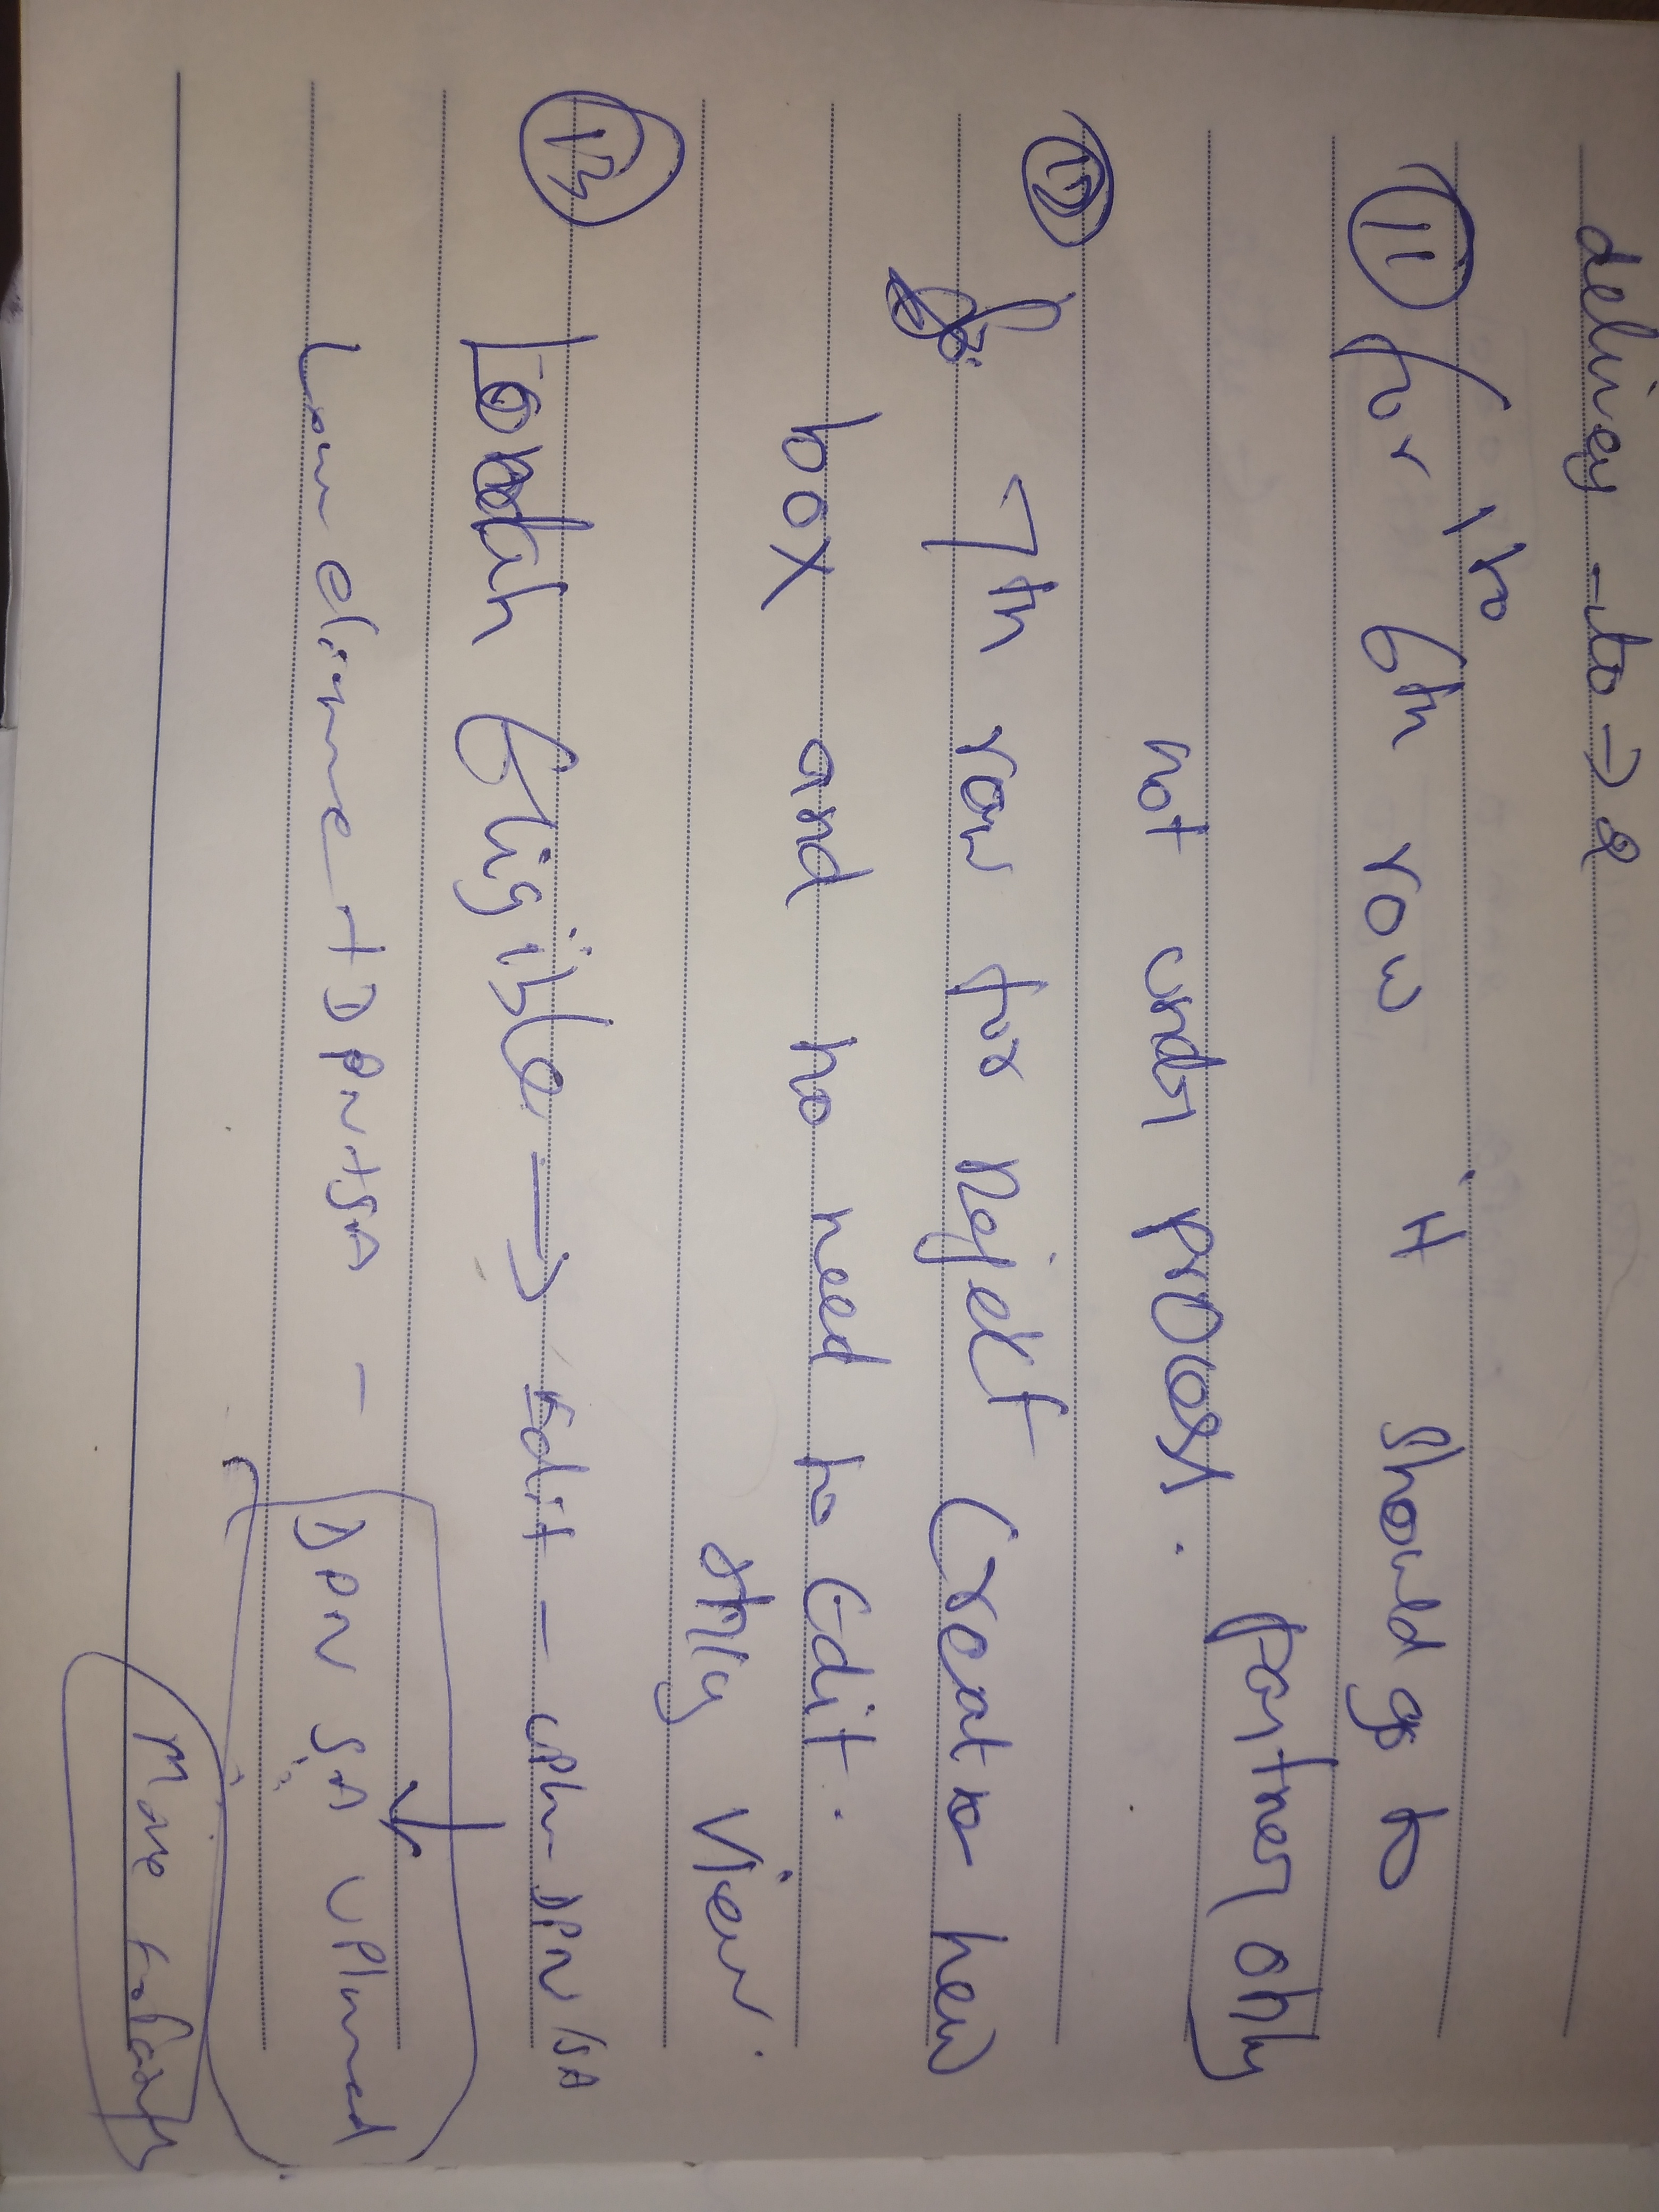 delivey - to -> 2
11 for 1 to 6th row it should go to
partner only
not under process.
12 7th row for Reject Create new
box and no need to Edit.
only view.
13 Eligible -> Edit - DPN/SA
+ DPN + SA - DPN SA
Move to